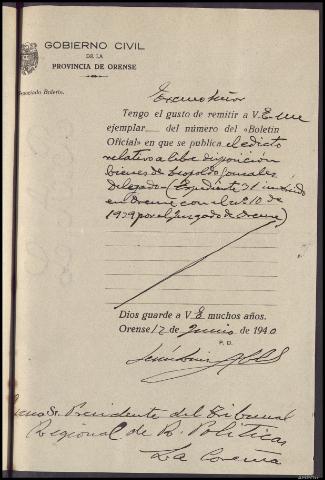 GOBIERNO CIVIL
DE LA
PROVINCIA DE ORENSE
Negociado Boletín.
Excmo Señor
Tengo el gusto de remitir a V. E un
ejemplar del número del «Boletín
Oficial» en que se publica el edicto
relativo a libre disposición
bienes de Leopoldo González
Delgado (Expediente 31 incoado
en Orense con el nº 10 de
1939 por el Juzgado de Orense)
Dios guarde a V E muchos años.
Orense 12 de Junio de 1940
P. D.
Excmo Sr. Presidente del Tribunal
Regional de R. Políticas
La Coruña